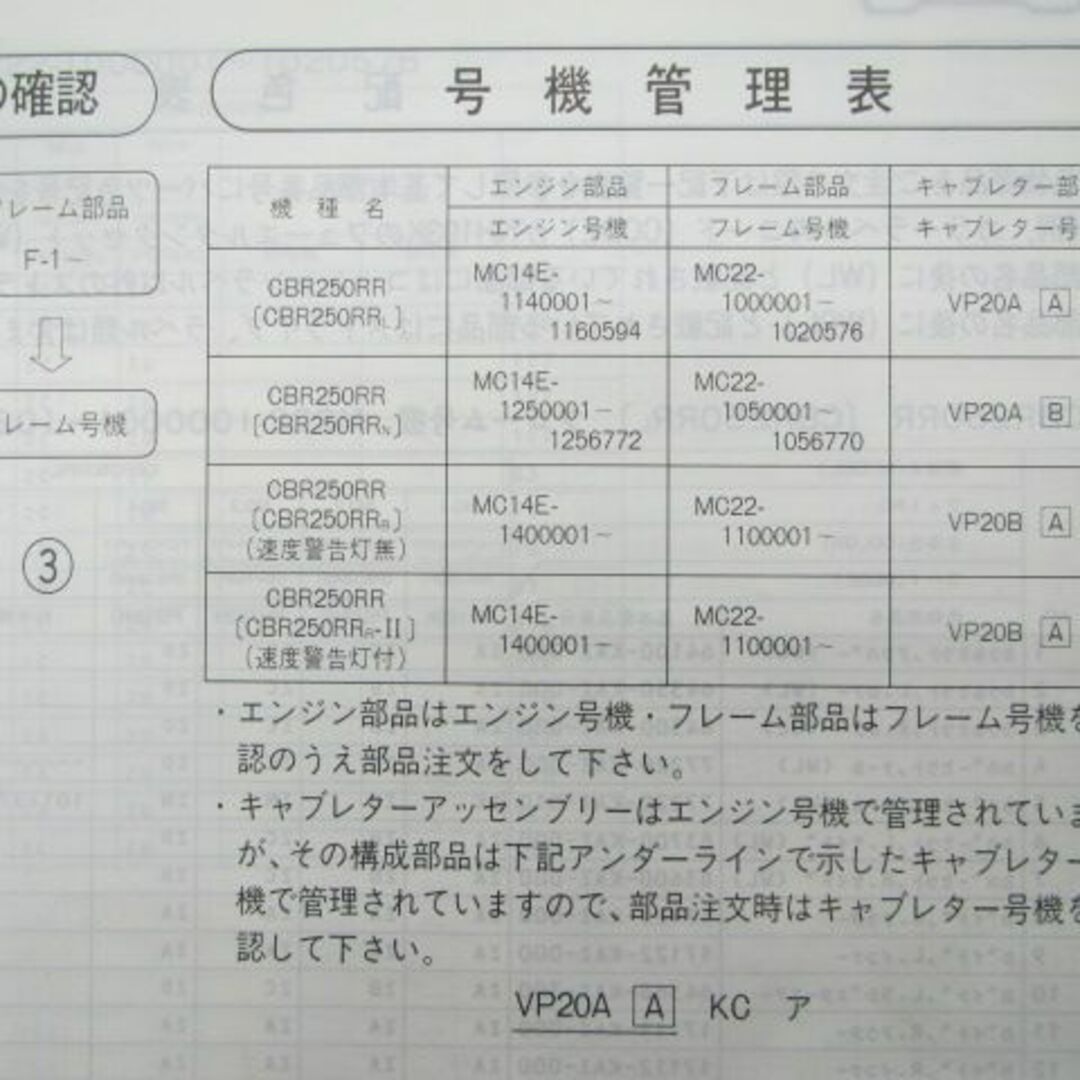 の確認
号機管理表
フレーム部品
F-1～
フレーム号機
③
機種名
エンジン部品
フレーム部品
キャブレター部
エンジン号機
フレーム号機
キャブレター号
CBR250RR
〔CBR250RRL〕
MC14E-
1140001～
1160594
MC22-
1000001～
1020576
VP20A A
CBR250RR
〔CBR250RRN〕
MC14E-
1250001～
1256772
MC22-
1050001～
1056770
VP20A B
CBR250RR
〔CBR250RRR〕
(速度警告灯無)
MC14E-
1400001～
MC22-
1100001～
VP20B A
CBR250RR
〔CBR250RRR-II〕
(速度警告灯付)
MC14E-
1400001～
MC22-
1100001～
VP20B A
・エンジン部品はエンジン号機・フレーム部品はフレーム号機を
認のうえ部品注文をして下さい。
・キャブレターアッセンブリーはエンジン号機で管理されていま
が、その構成部品は下記アンダーラインで示したキャブレター
機で管理されていますので、部品注文時はキャブレター号機を
認して下さい。
VP20A A KC ア